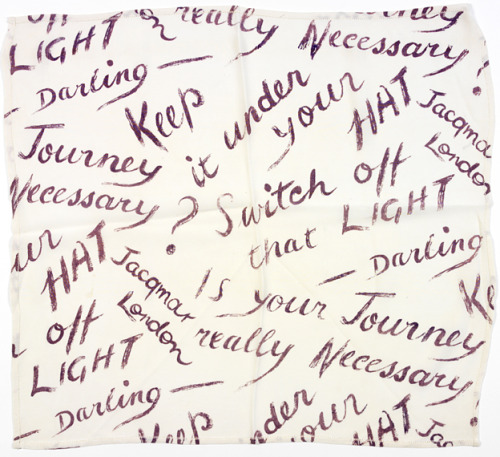 your
Journey
off
really
Necessary?
LIGHT
— Darling —
Keep
it under
your
HAT
Jacqmar
London
Journey
Necessary
?
Switch off
that LIGHT
— Darling
ur
HAT
Jacqmar
London
Is your Journey
really Necessary
off
LIGHT
— Darling —
Keep
nder
our
HAT
Jac